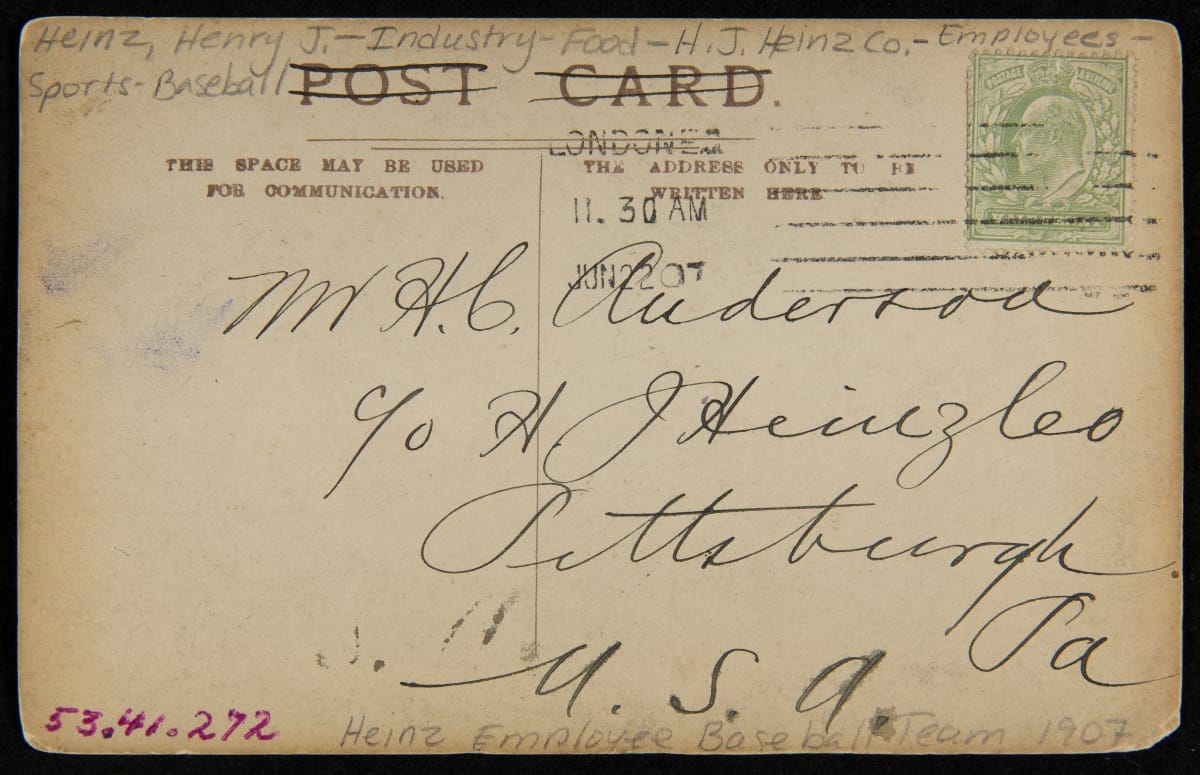 Heinz, Henry J. - Industry - Food - H. J. Heinz Co. - Employees -
Sports - Baseball
POST CARD.
POSTAGE
THIS SPACE MAY BE USED
FOR COMMUNICATION.
THE ADDRESS ONLY TO BE
WRITTEN HERE
LONDON
11. 30 AM
JUN 22 07
Mr H. C. Anderson
c/o H J Heinz Co
Pittsburgh
Pa
U. S. A.
53.41.272
Heinz Employee Baseball Team 1907